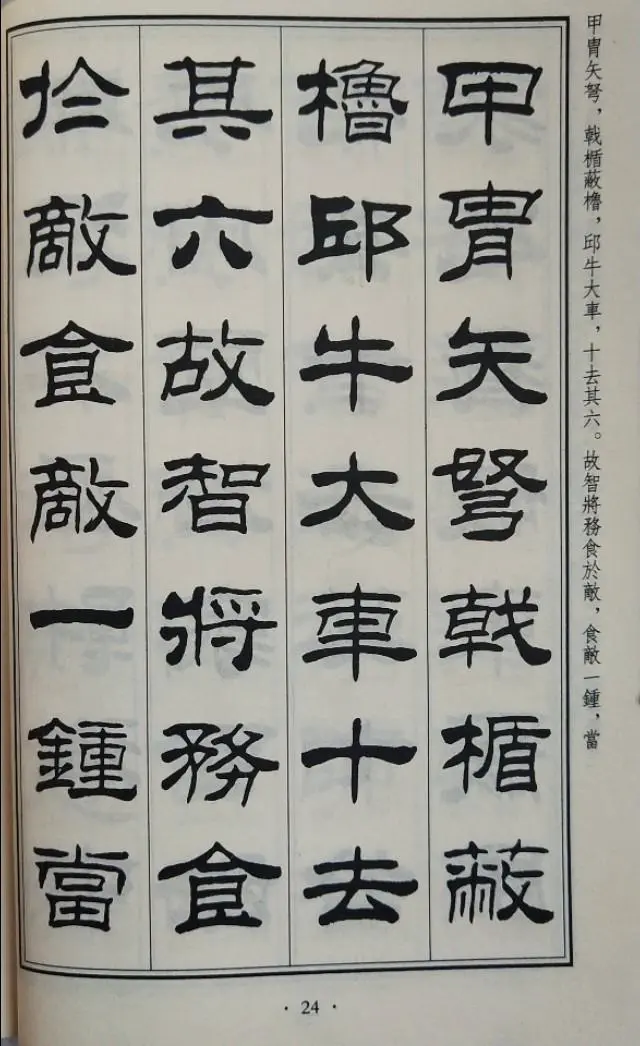 甲冑矢弩戟楯蔽
櫓邱牛大車十去
其六故智將務食
於敵食敵一鍾當
甲冑矢弩，戟楯蔽櫓，邱牛大車，十去其六。故智將務食於敵，食敵一鍾，當
· 24 ·